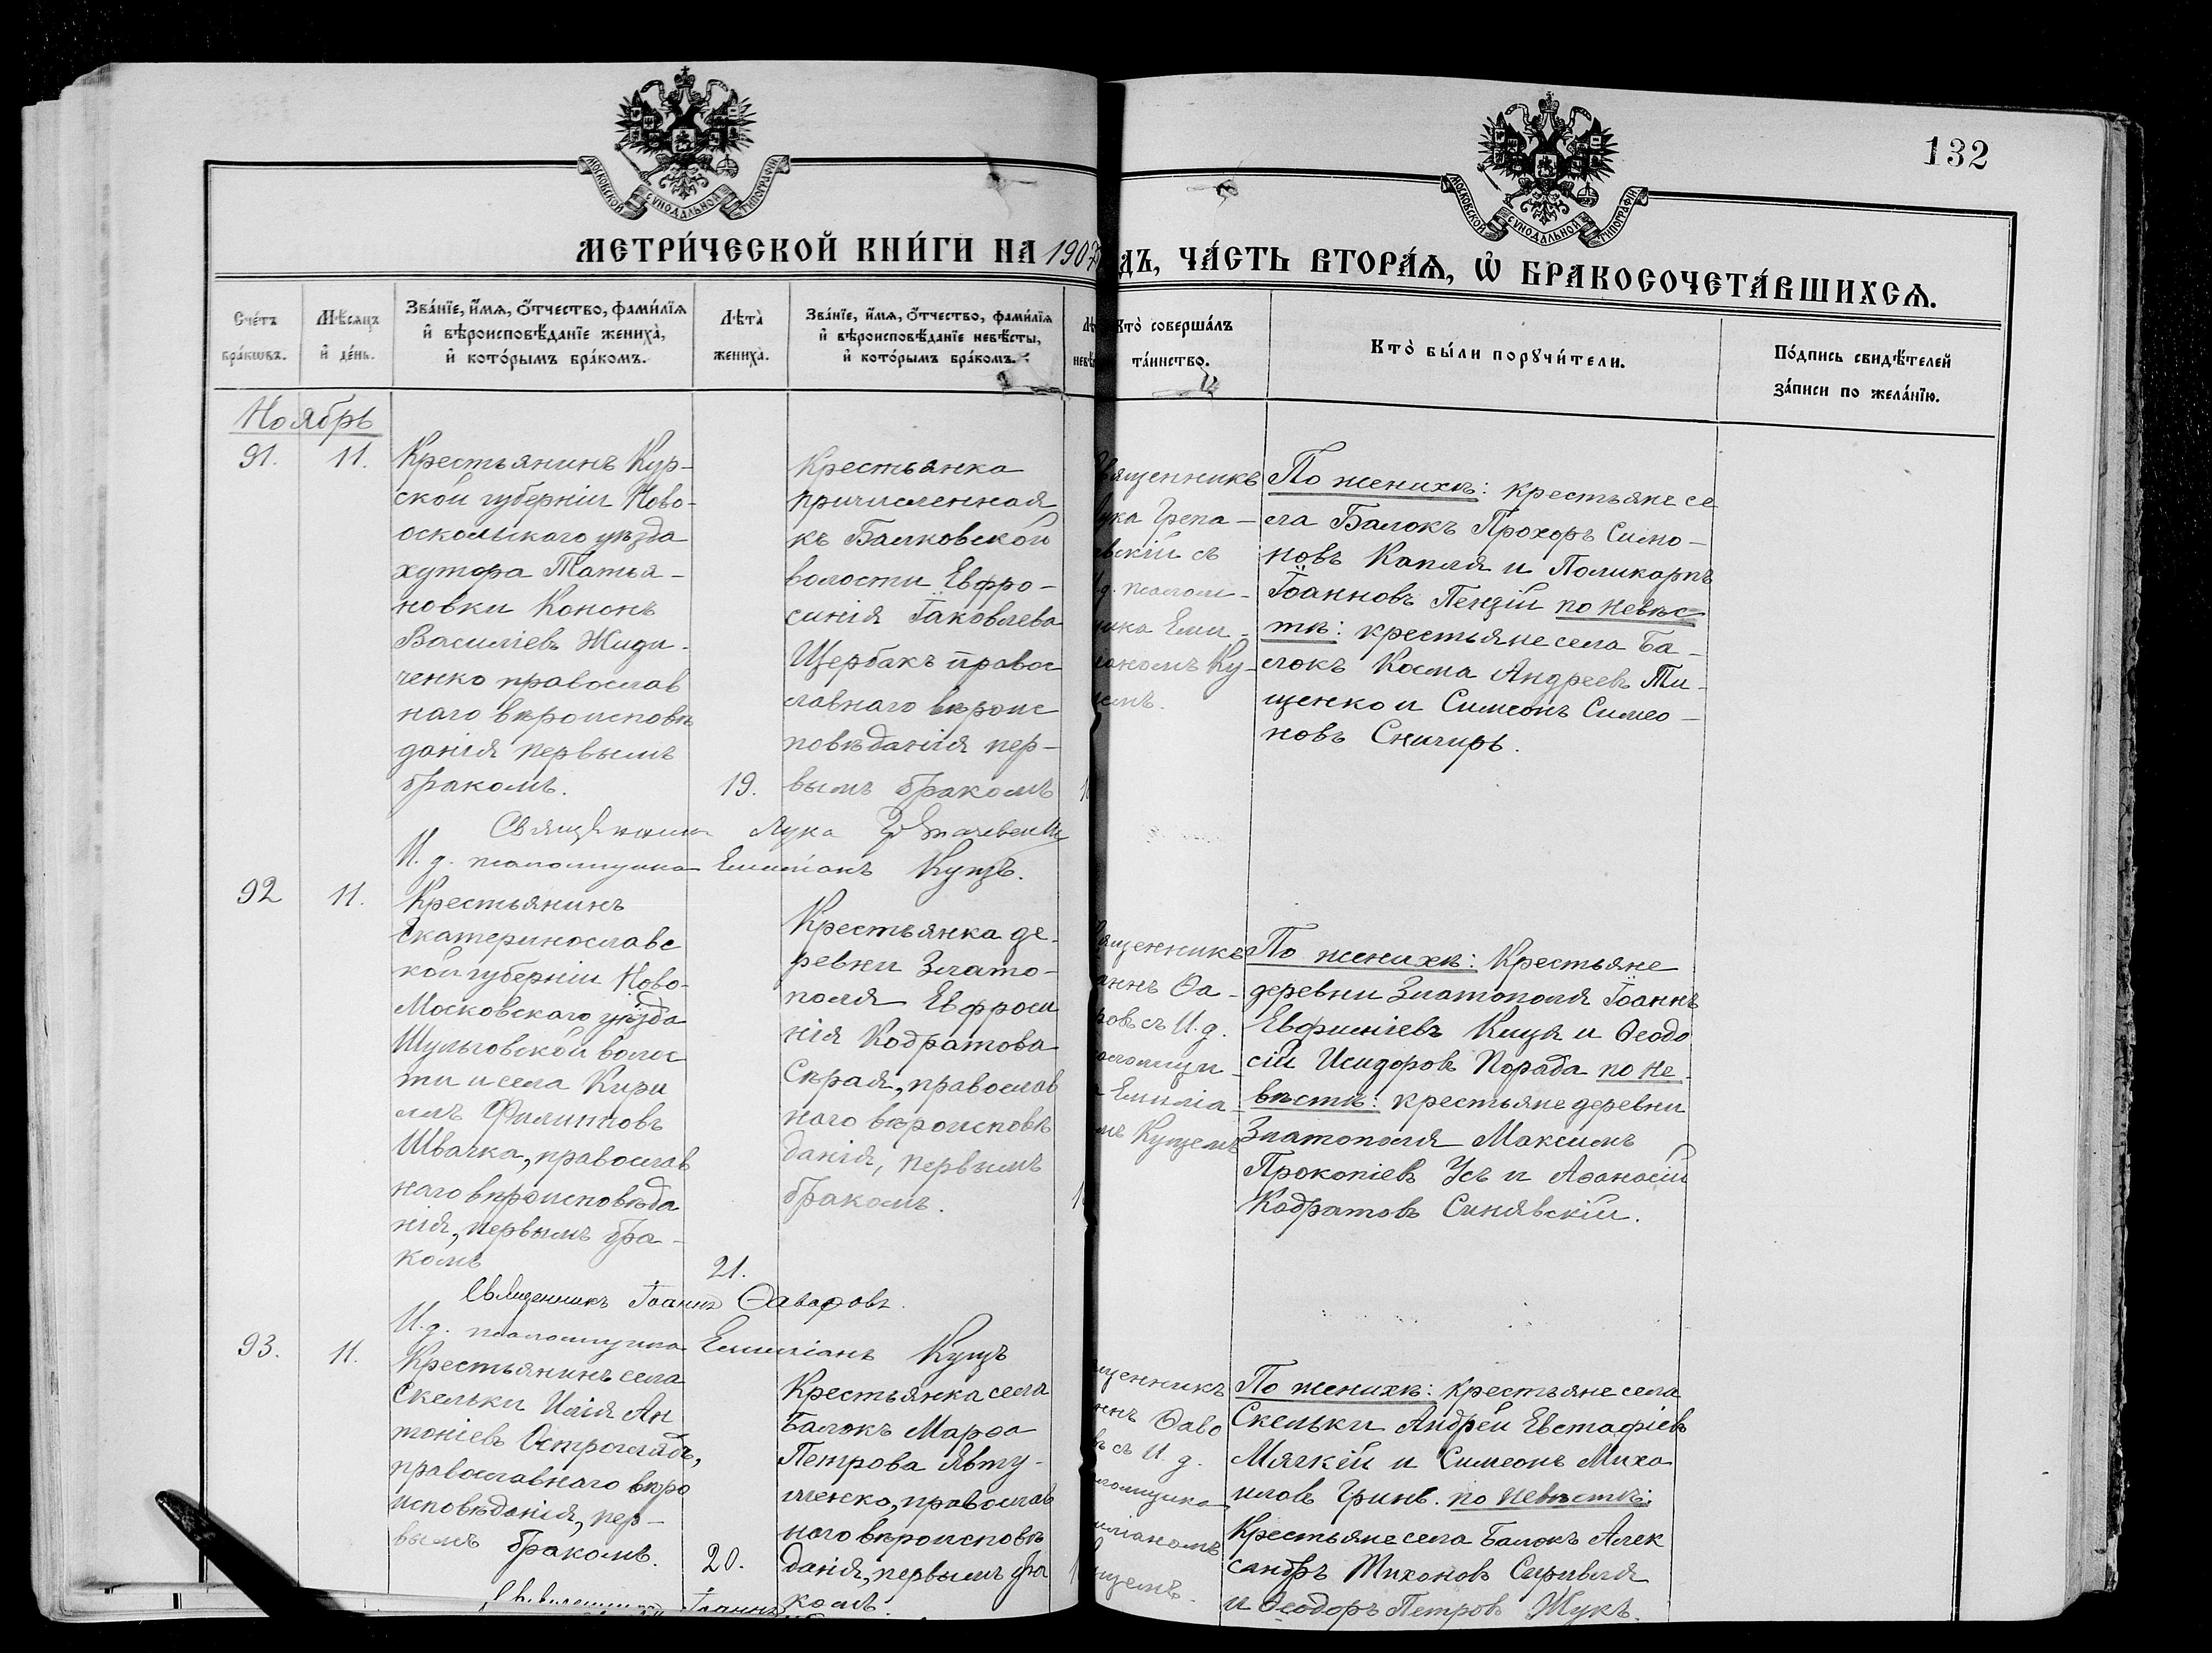 132
МОСКОВСКОЙ СИНОДАЛЬНОЙ ТИПОГРАФІИ
МОСКОВСКОЙ СИНОДАЛЬНОЙ ТИПОГРАФІИ
МЕТРИ́ЧЕСКОЙ КНИ́ГИ НА 1907
ДЪ, ЧА́СТЬ ВТОРА́Ѧ, Ѽ БРАКОСОЧЕТА́ВШИХСѦ.
Сче́тъ
бра́кѡвъ.
Мѣ́сѧцъ
и҆ де́нь.
Зва́нїе, и҆́мѧ, ѻ҆́тчество, фами́лїѧ
и҆ вѣроисповѣ́данїе жениха̀,
и҆ кото́рымъ бра́комъ.
Лѣта̀
жениха̀.
Зва́нїе, и҆́мѧ, ѻ҆́тчество, фами́лїѧ
и҆ вѣроисповѣ́данїе невѣ́сты,
и҆ кото́рымъ бра́комъ.
Кто̀ соверша́лъ
та́инство.
Кто̀ бы́ли порꙋчи́тели.
По́дпись свидѣ́телей
за́писи по жела́нїю.
Ноябрь
91.
11.
Крестьянинъ Кур-
ской губерніи Ново-
оскольскаго уѣзда
хутора Татья-
новки Кононъ
Василіевъ Жиди-
ченко православ
наго вѣроисповѣ
данія первымъ
бракомъ.
19.
Крестьянка
причисленная
къ Балковской
волости Евфро-
синія Іаковлева
Щербакъ правос
лавнаго вѣроис
повѣданія пер-
вымъ бракомъ
вященникъ
ука Грепа-
вскій съ
д. псалом-
ика Еми-
іаномъ Ку-
цемъ.
По женихѣ: крестьяне се
ла Балокъ Прохоръ Симо-
новъ Капля и Поликарпъ
Іоанновъ Пензій по невѣс-
тѣ: крестьяне села Ба-
локъ Косма Андреевъ Ти-
щенко и Симеонъ Симео-
новъ Снигирь.
Священникъ Лука
И. д. псаломщика Емиліанъ Куцъ.
92
11.
Крестьянинъ
Екатеринославс
кой губерніи Ново-
Московскаго уѣзда
Шульговской волос
ти и села Кири
лъ Филиповъ
Швачка, православ
наго вѣроисповѣда
нія, первымъ бра-
комъ
21.
Крестьянка де-
ревни Злато-
поля Евфроси
нія Кодратова
Скрая, православ
наго вѣроисповѣ
данія, первымъ
бракомъ.
вященникъ
аннъ Ѳа-
ровъ съ И. д.
саломщи-
Емиліа-
мъ Куцемъ
По женихѣ: Крестьяне
деревни Златополя Іоаннъ
Евфиміевъ Куця и Ѳеодо
сій Исидоровъ Порада по не-
вѣстѣ: крестьяне деревни
Златополя Максимъ
Прокопіевъ Усъ и Аѳанасій
Кодратовъ Синявскій.
Священникъ Іоаннъ Ѳаворовъ.
И. д. псаломщика Емиліанъ Куцъ
93.
11.
Крестьянинъ села
Скельки Илія Ан
тоніевъ Остроглядъ,
православнаго вѣро
исповѣданія, пер-
вымъ бракомъ.
20.
Крестьянка села
Балокъ Марѳа
Петрова Явту-
шенко, православ
наго вѣроисповѣ
данія, первымъ бра
комъ.
щенникъ
ннъ Ѳаво
въ съ И. д.
ломщика
иліаномъ
уцемъ.
По женихѣ: Крестьяне села
Скельки Андрей Евстафіевъ
Мягкій и Симеонъ Миха
иловъ Гринь. по невѣстѣ:
Крестьяне села Балокъ Алек
сандръ Тихоновъ
и Ѳеодоръ Петровъ Жукъ.
Священникъ Іоаннъ